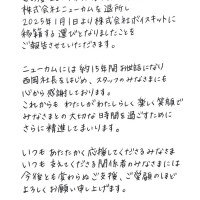 株式会社ニューカムを退所し
2025年1月1日より株式会社ボイスキットに
移籍する運びとなりましたことを
ご報告させていただきます。
ニューカムには約15年間お世話になり
西岡社長をはじめ、スタッフのみなさまにも
心から感謝しております。
これからも わたしがわたしらしく 楽しく笑顔で
みなさまとの大切な日時間を過ごすために
さらに精進してまいります。
いつも あたたかく応援してくださるみなさま
いつも 支えてくださる関係者のみなさまには
今後とも変わらぬご支援、ご愛顧のほど
よろしくお願い申し上げます。